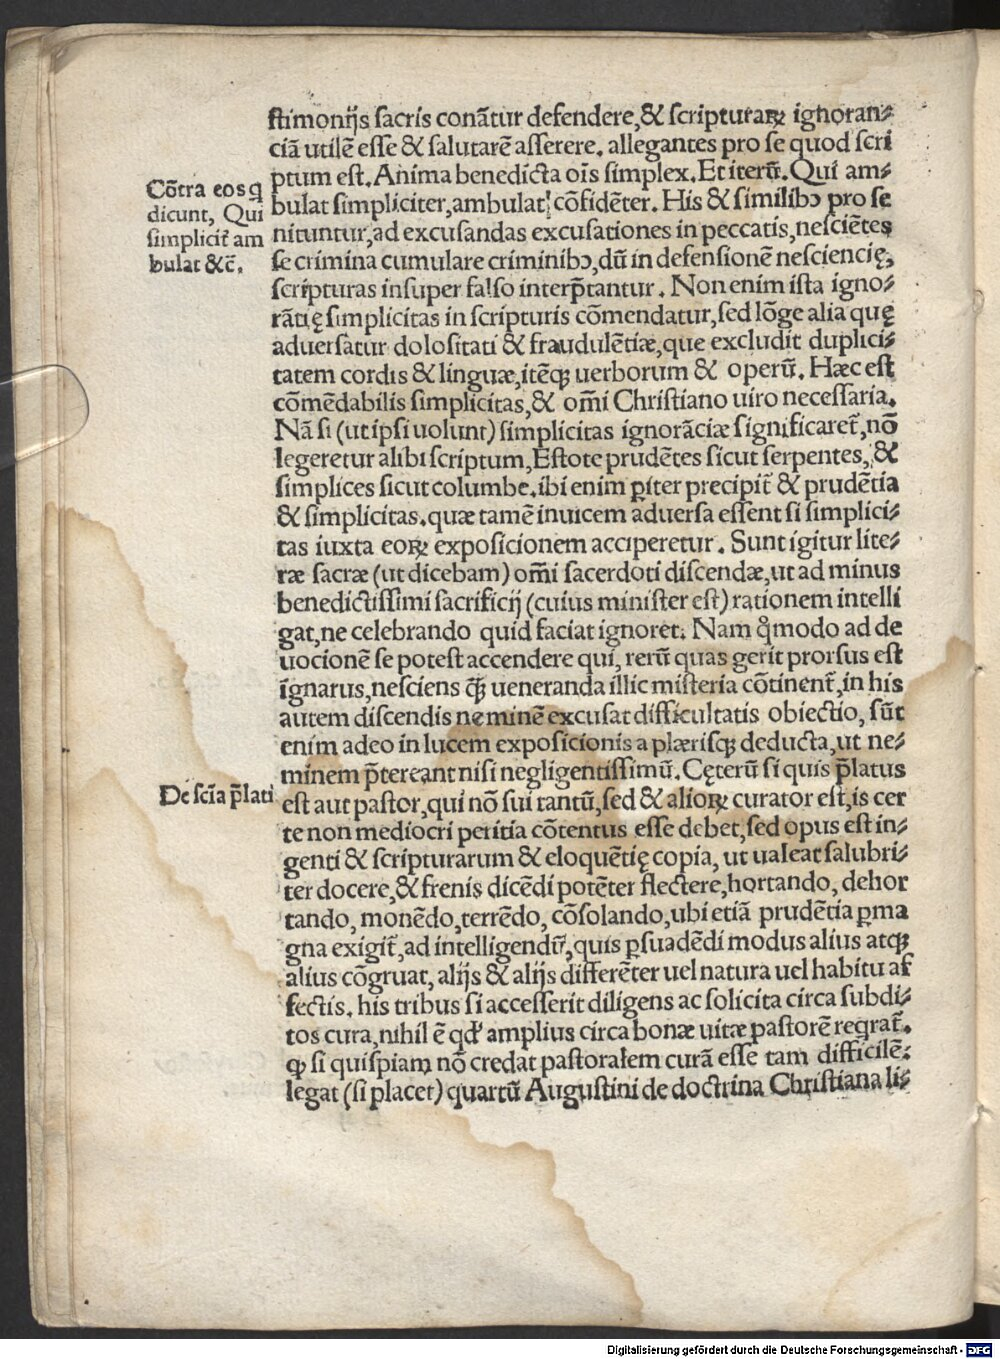 ſtimonijs ſacris conãtur defendere,& ſcripturaꝝ ignoran⸗
ciã utilẽ eſſe & ſalutarẽ aſſerere. allegantes pro ſe quod ſcri
ptum eſt. Anima benedicta oĩs ſimplex. Et iterũ. Qui am⸗
bulat ſimpliciter,ambulat cõfidẽter. His & ſimilibꝰ pro ſe
nituntur,ad excuſandas excuſationes in peccatis,neſciẽtes
ſe crimina cumulare criminibꝰ,dũ in defenſionẽ neſciencię,
ſcripturas inſuper falſo interp̃tantur. Non enim iſta igno⸗
rãtię ſimplicitas in ſcripturis cõmendatur,ſed lõge alia quę
aduerſatur doloſitati & fraudulẽtiæ,que excludit duplici⸗
tatem cordis & linguæ,itẽqꝫ uerborum & operũ. Hæc eſt
cõmẽdabilis ſimplicitas,& om̃i Chriſtiano uiro neceſſaria.
Nã ſi (ut ipſi uolunt) ſimplicitas ignorãciæ ſignificaret̃,nõ
legeretur alibi ſcriptum,Eſtote prudẽtes ſicut ſerpentes,&
ſimplices ſicut columbe.ibi enim ꝑiter precipit̃ & prudẽtia
& ſimplicitas.quæ tamẽ inuicem aduerſa eſſent ſi ſimplici⸗
tas iuxta eoꝝ expoſicionem acciperetur. Sunt igitur lite⸗
ræ ſacræ (ut dicebam) om̃i ſacerdoti diſcendæ,ut ad minus
benedictiſſimi ſacrificij (cuius miniſter eſt) rationem intelli
gat,ne celebrando quid faciat ignoret. Nam q̃modo ad de
uocionẽ ſe poteſt accendere qui, rerũ quas gerit prorſus eſt
ignarus,neſciens q̃ꝫ ueneranda illic miſteria cõtinent̃,in his
autem diſcendis neminẽ excuſat difficultatis obiectio, ſũt
enim adeo in lucem expoſicionis a plæriſqꝫ deducta,ut ne⸗
minem p̃tereant niſi negligentiſſimũ. Cęterũ ſi quis p̃latus
eſt aut paſtor,qui nõ ſui tantũ,ſed & alioꝝ curator eſt,is cer
te non mediocri peritia cõtentus eſſe debet,ſed opus eſt in⸗
genti & ſcripturarum & eloquẽtię copia, ut ualeat ſalubri⸗
ter docere,& frenis dicẽdi potẽter flectere,hortando, dehor
tando, monẽdo,terrẽdo, cõſolando,ubi etiã prudẽtia ꝑma
gna exigit̃,ad intelligendũ,quis ꝑſuadẽdi modus alius atqꝫ
alius cõgruat, alijs & alijs differẽter uel natura uel habitu af
fectis. his tribus ſi acceſſerit diligens ac ſolicita circa ſubdi⸗
tos cura,nihil ẽ qd̃ amplius circa bonæ uitæ paſtorẽ reqrat̃.
qꝫ ſi quiſpiam nõ credat paſtoralem curã eſſe tam difficilẽ:
legat (ſi placet) quartũ Auguſtini de doctrina Chriſtiana li⸗
Cõtra eos q
dicunt, Qui
ſimplicit̃ am
bulat &c̃.
De ſcĩa p̃lati
Digitalisierung gefördert durch die Deutsche Forschungsgemeinschaft - DFG